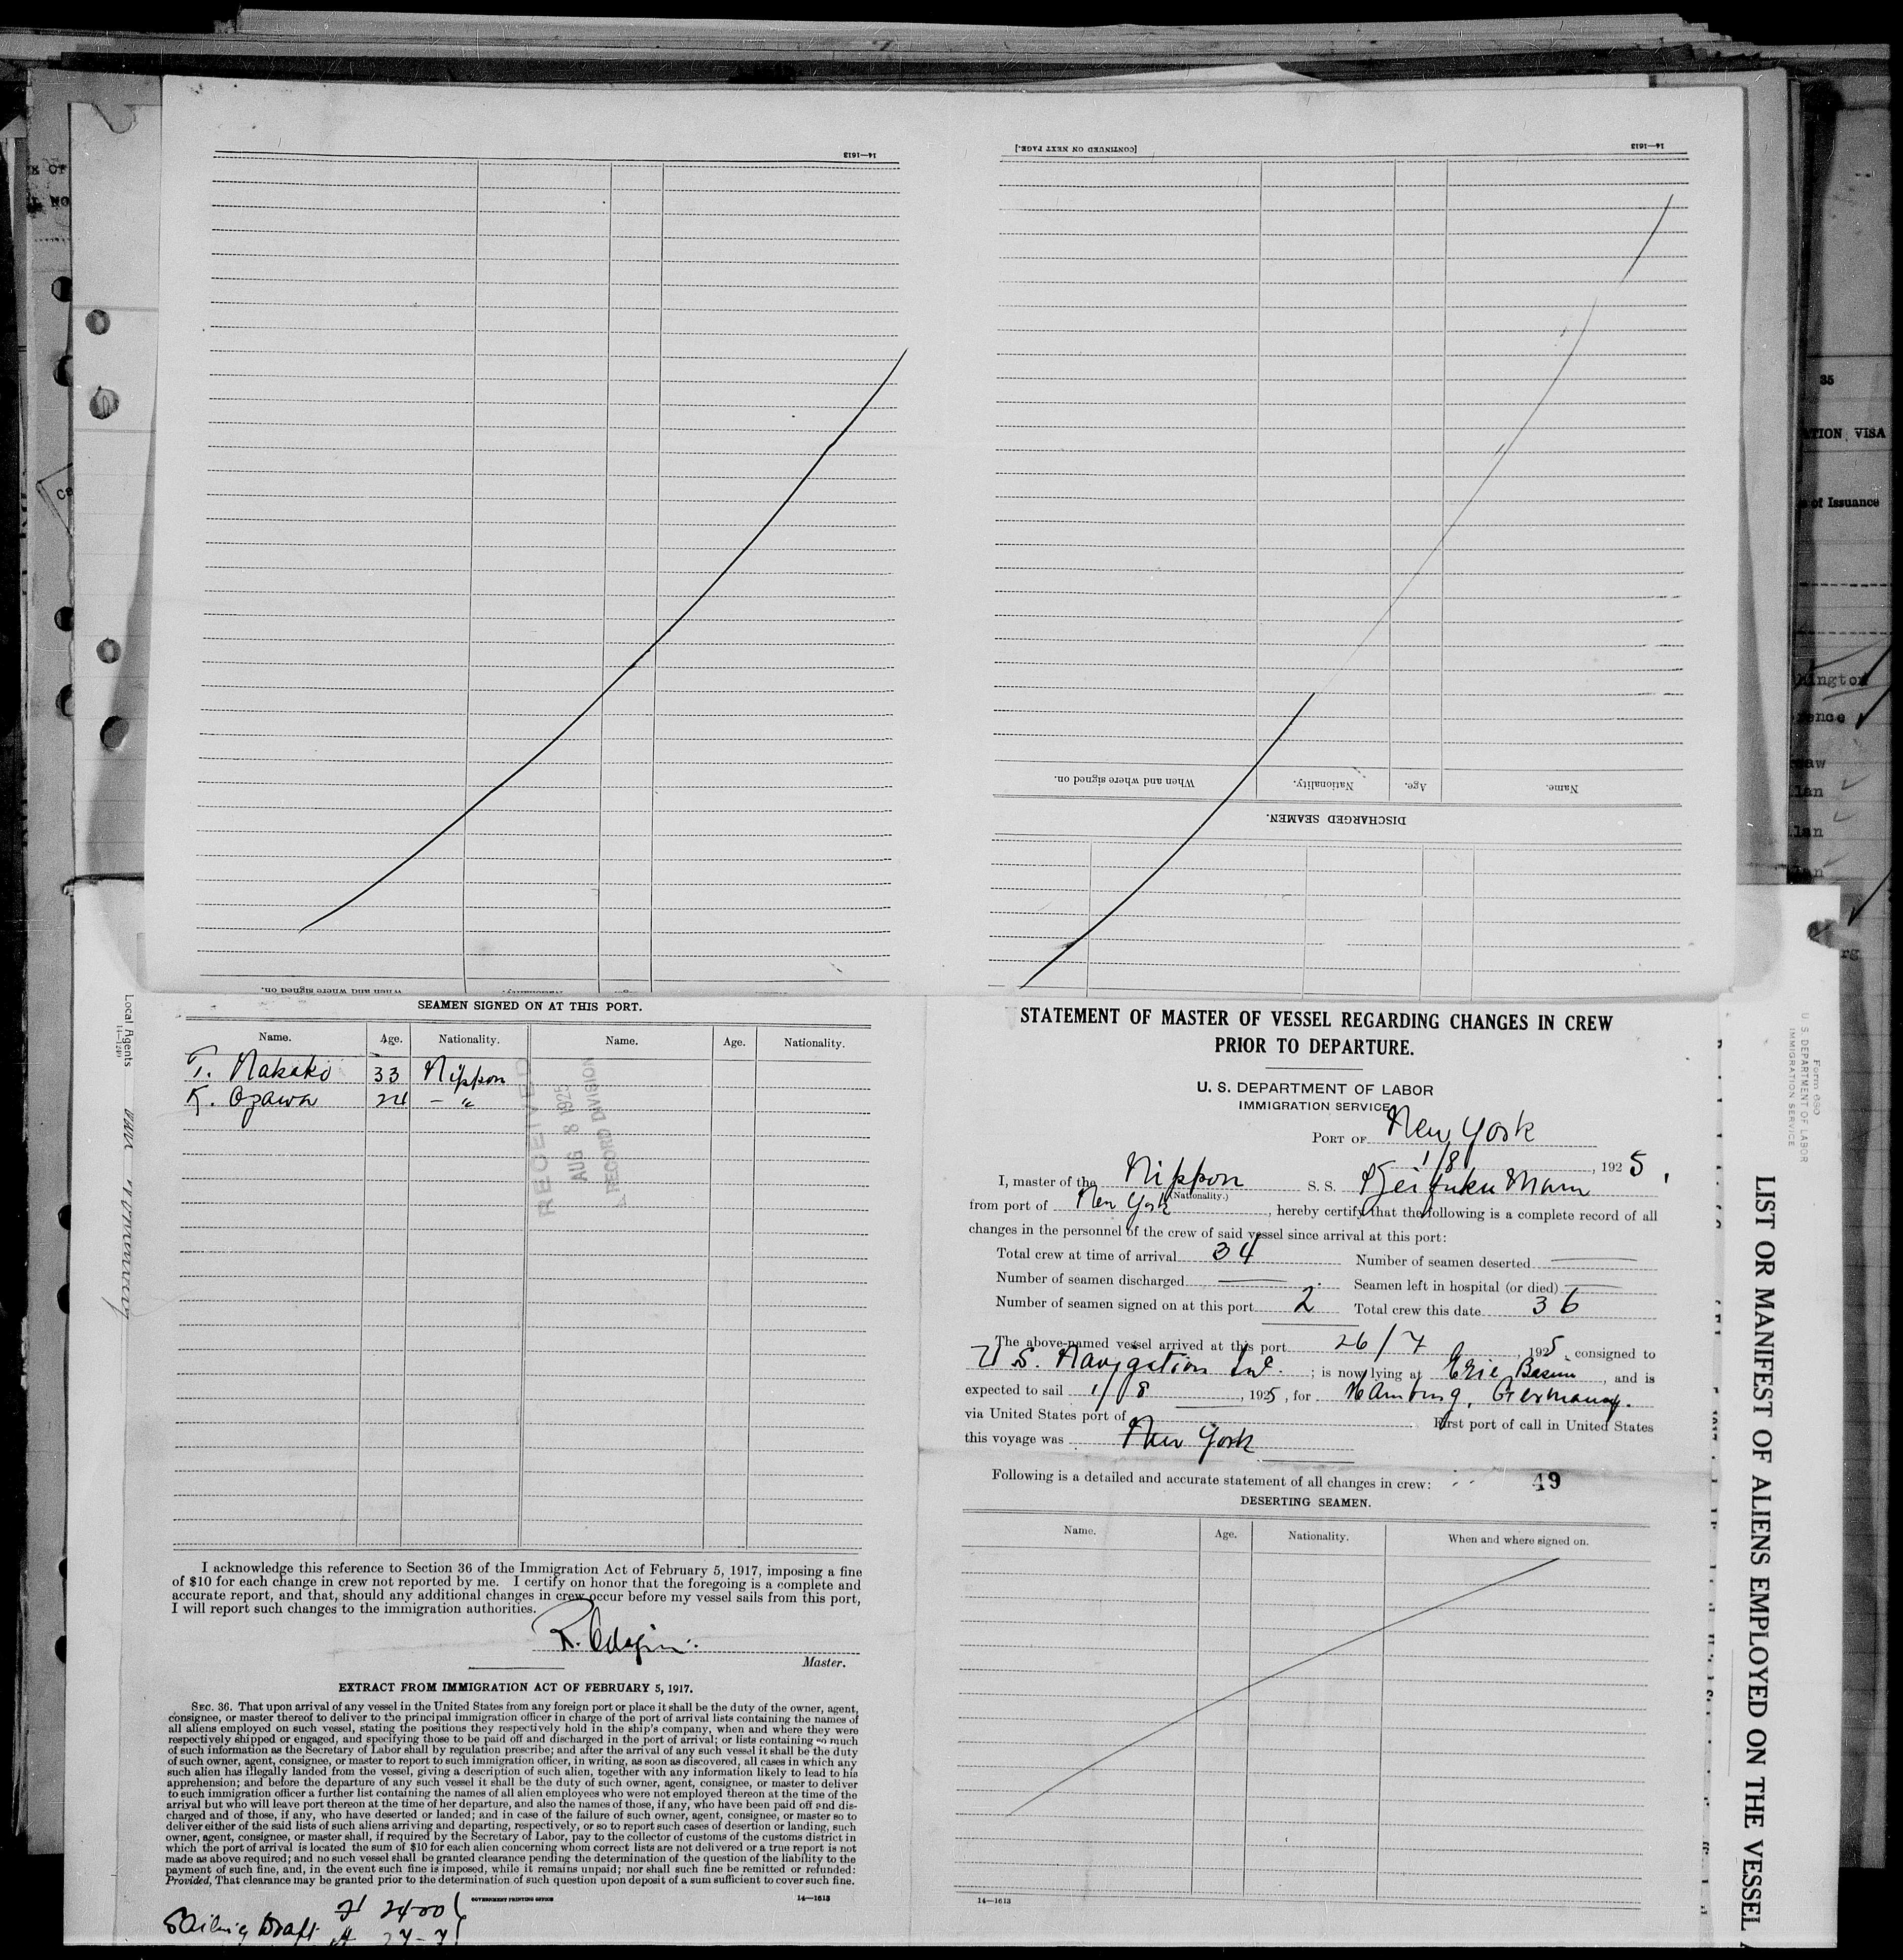 14—1613
[CONTINUED ON NEXT PAGE.]
14—1613
When and where signed on.
Nationality.
Age.
Name.
DISCHARGED SEAMEN.
When and where signed on.
35
ATION VISA
of Issuance
SEAMEN SIGNED ON AT THIS PORT.
Name. Age. Nationality. Name. Age. Nationality.
T. Nakako 33 Nippon
K. Ozawa 24 - "
RECEIVED
AUG 8 1925
RECORD DIVISION
Local Agents
I acknowledge this reference to Section 36 of the Immigration Act of February 5, 1917, imposing a fine
of $10 for each change in crew not reported by me. I certify on honor that the foregoing is a complete and
accurate report, and that, should any additional changes in crew occur before my vessel sails from this port,
I will report such changes to the immigration authorities.
Master.
EXTRACT FROM IMMIGRATION ACT OF FEBRUARY 5, 1917.
SEC. 36. That upon arrival of any vessel in the United States from any foreign port or place it shall be the duty of the owner, agent,
consignee, or master thereof to deliver to the principal immigration officer in charge of the port of arrival lists containing the names of
all aliens employed on such vessel, stating the positions they respectively hold in the ship's company, when and where they were
respectively shipped or engaged, and specifying those to be paid off and discharged in the port of arrival; or lists containing so much
of such information as the Secretary of Labor shall by regulation prescribe; and after the arrival of any such vessel it shall be the duty
of such owner, agent, consignee, or master to report to such immigration officer, in writing, as soon as discovered, all cases in which any
such alien has illegally landed from the vessel, giving a description of such alien, together with any information likely to lead to his
apprehension; and before the departure of any such vessel it shall be the duty of such owner, agent, consignee, or master to deliver
to such immigration officer a further list containing the names of all alien employees who were not employed thereon at the time of the
arrival but who will leave port thereon at the time of her departure, and also the names of those, if any, who have been paid off and dis-
charged and of those, if any, who have deserted or landed; and in case of the failure of such owner, agent, consignee, or master so to
deliver either of the said lists of such aliens arriving and departing, respectively, or so to report such cases of desertion or landing, such
owner, agent, consignee, or master shall, if required by the Secretary of Labor, pay to the collector of customs of the customs district in
which the port of arrival is located the sum of $10 for each alien concerning whom correct lists are not delivered or a true report is not
made as above required; and no such vessel shall be granted clearance pending the determination of the question of the liability to the
payment of such fine, and, in the event such fine is imposed, while it remains unpaid; nor shall such fine be remitted or refunded:
Provided, That clearance may be granted prior to the determination of such question upon deposit of a sum sufficient to cover such fine.
GOVERNMENT PRINTING OFFICE 14—1613
Sailing Draft
STATEMENT OF MASTER OF VESSEL REGARDING CHANGES IN CREW
PRIOR TO DEPARTURE.
U. S. DEPARTMENT OF LABOR
IMMIGRATION SERVICE
PORT OF New York
1/8, 1925
I, master of the Nippon S. S. Keifuku Maru
(Nationality.)
from port of New York, hereby certify that the following is a complete record of all
changes in the personnel of the crew of said vessel since arrival at this port:
Total crew at time of arrival 34 Number of seamen deserted
Number of seamen discharged Seamen left in hospital (or died)
Number of seamen signed on at this port 2 Total crew this date 36
The above-named vessel arrived at this port 26/7, 1925 consigned to
U.S. Navigation; is now lying at Erie Basin, and is
expected to sail 1/8, 1925, for Hamburg, Germany.
via United States port of First port of call in United States
this voyage was New York
Following is a detailed and accurate statement of all changes in crew: 49
DESERTING SEAMEN.
Name. Age. Nationality. When and where signed on.
14—1613
Form 680
U. S. DEPARTMENT OF LABOR
IMMIGRATION SERVICE
LIST OR MANIFEST OF ALIENS EMPLOYED ON THE VESSEL